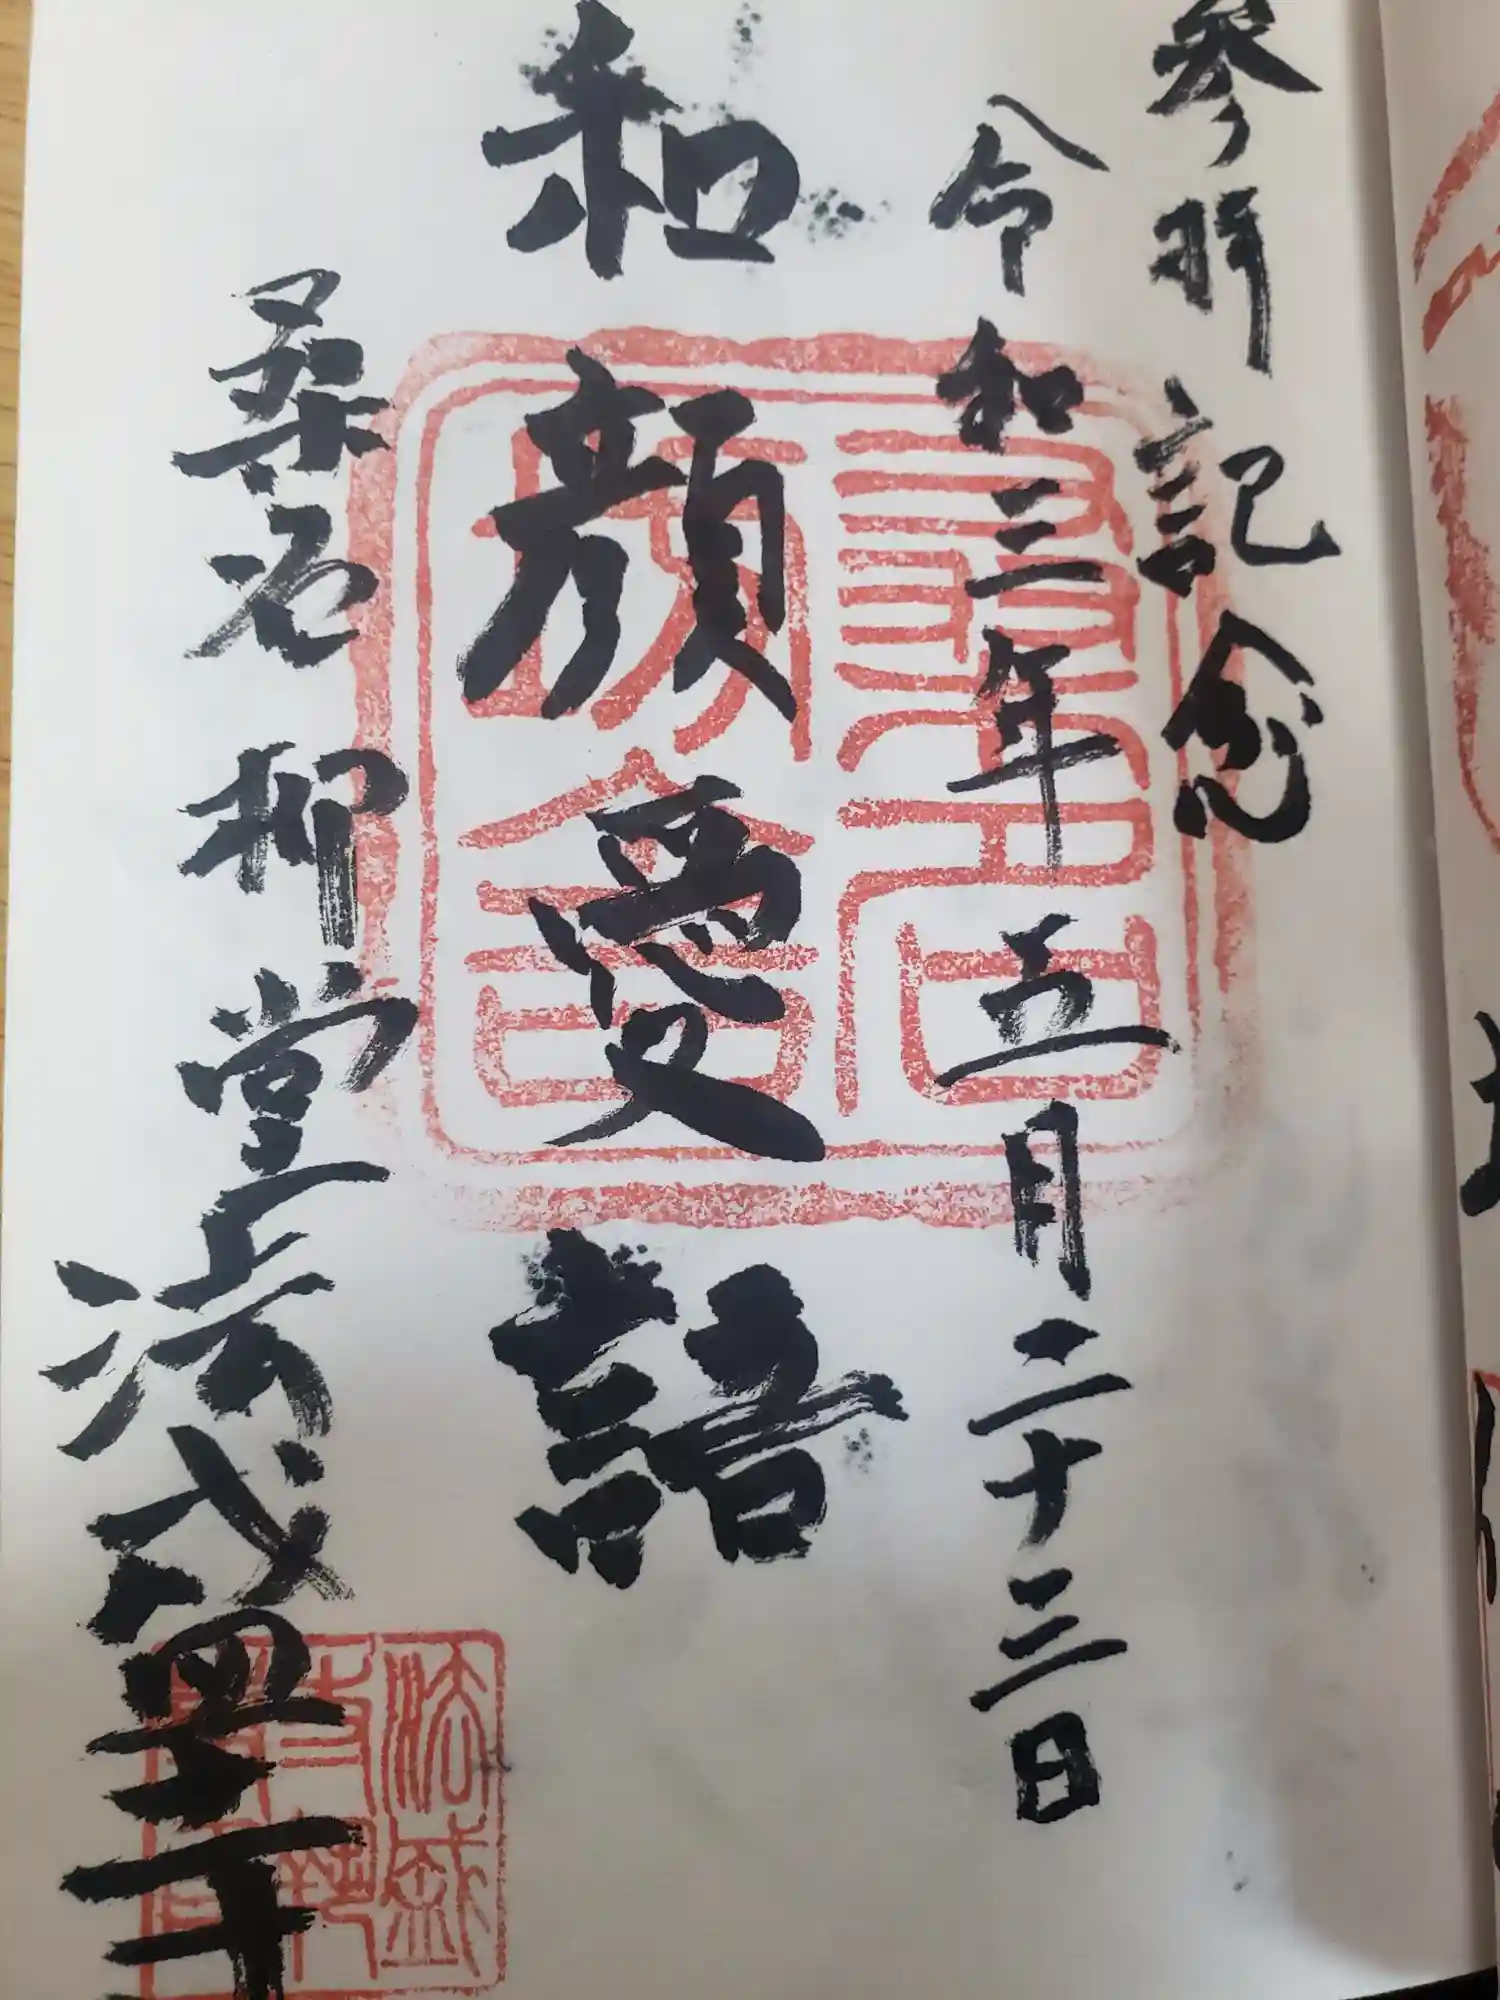 参拝記念
令和三年五月二十三日
和顔愛語
桑名柳堂法盛寺